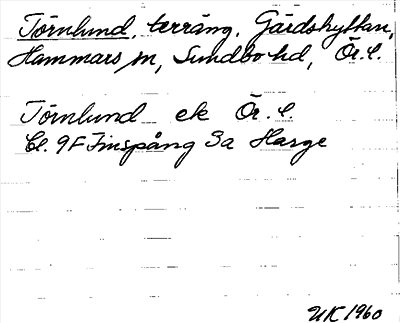 Törnlund, terräng, Gärdshyttan,
Hammars sn, Sundbo hd, Ör. l.
Törnlund ek Ör. l.
Bl. 9F Finspång 3a Harge
UK 1960